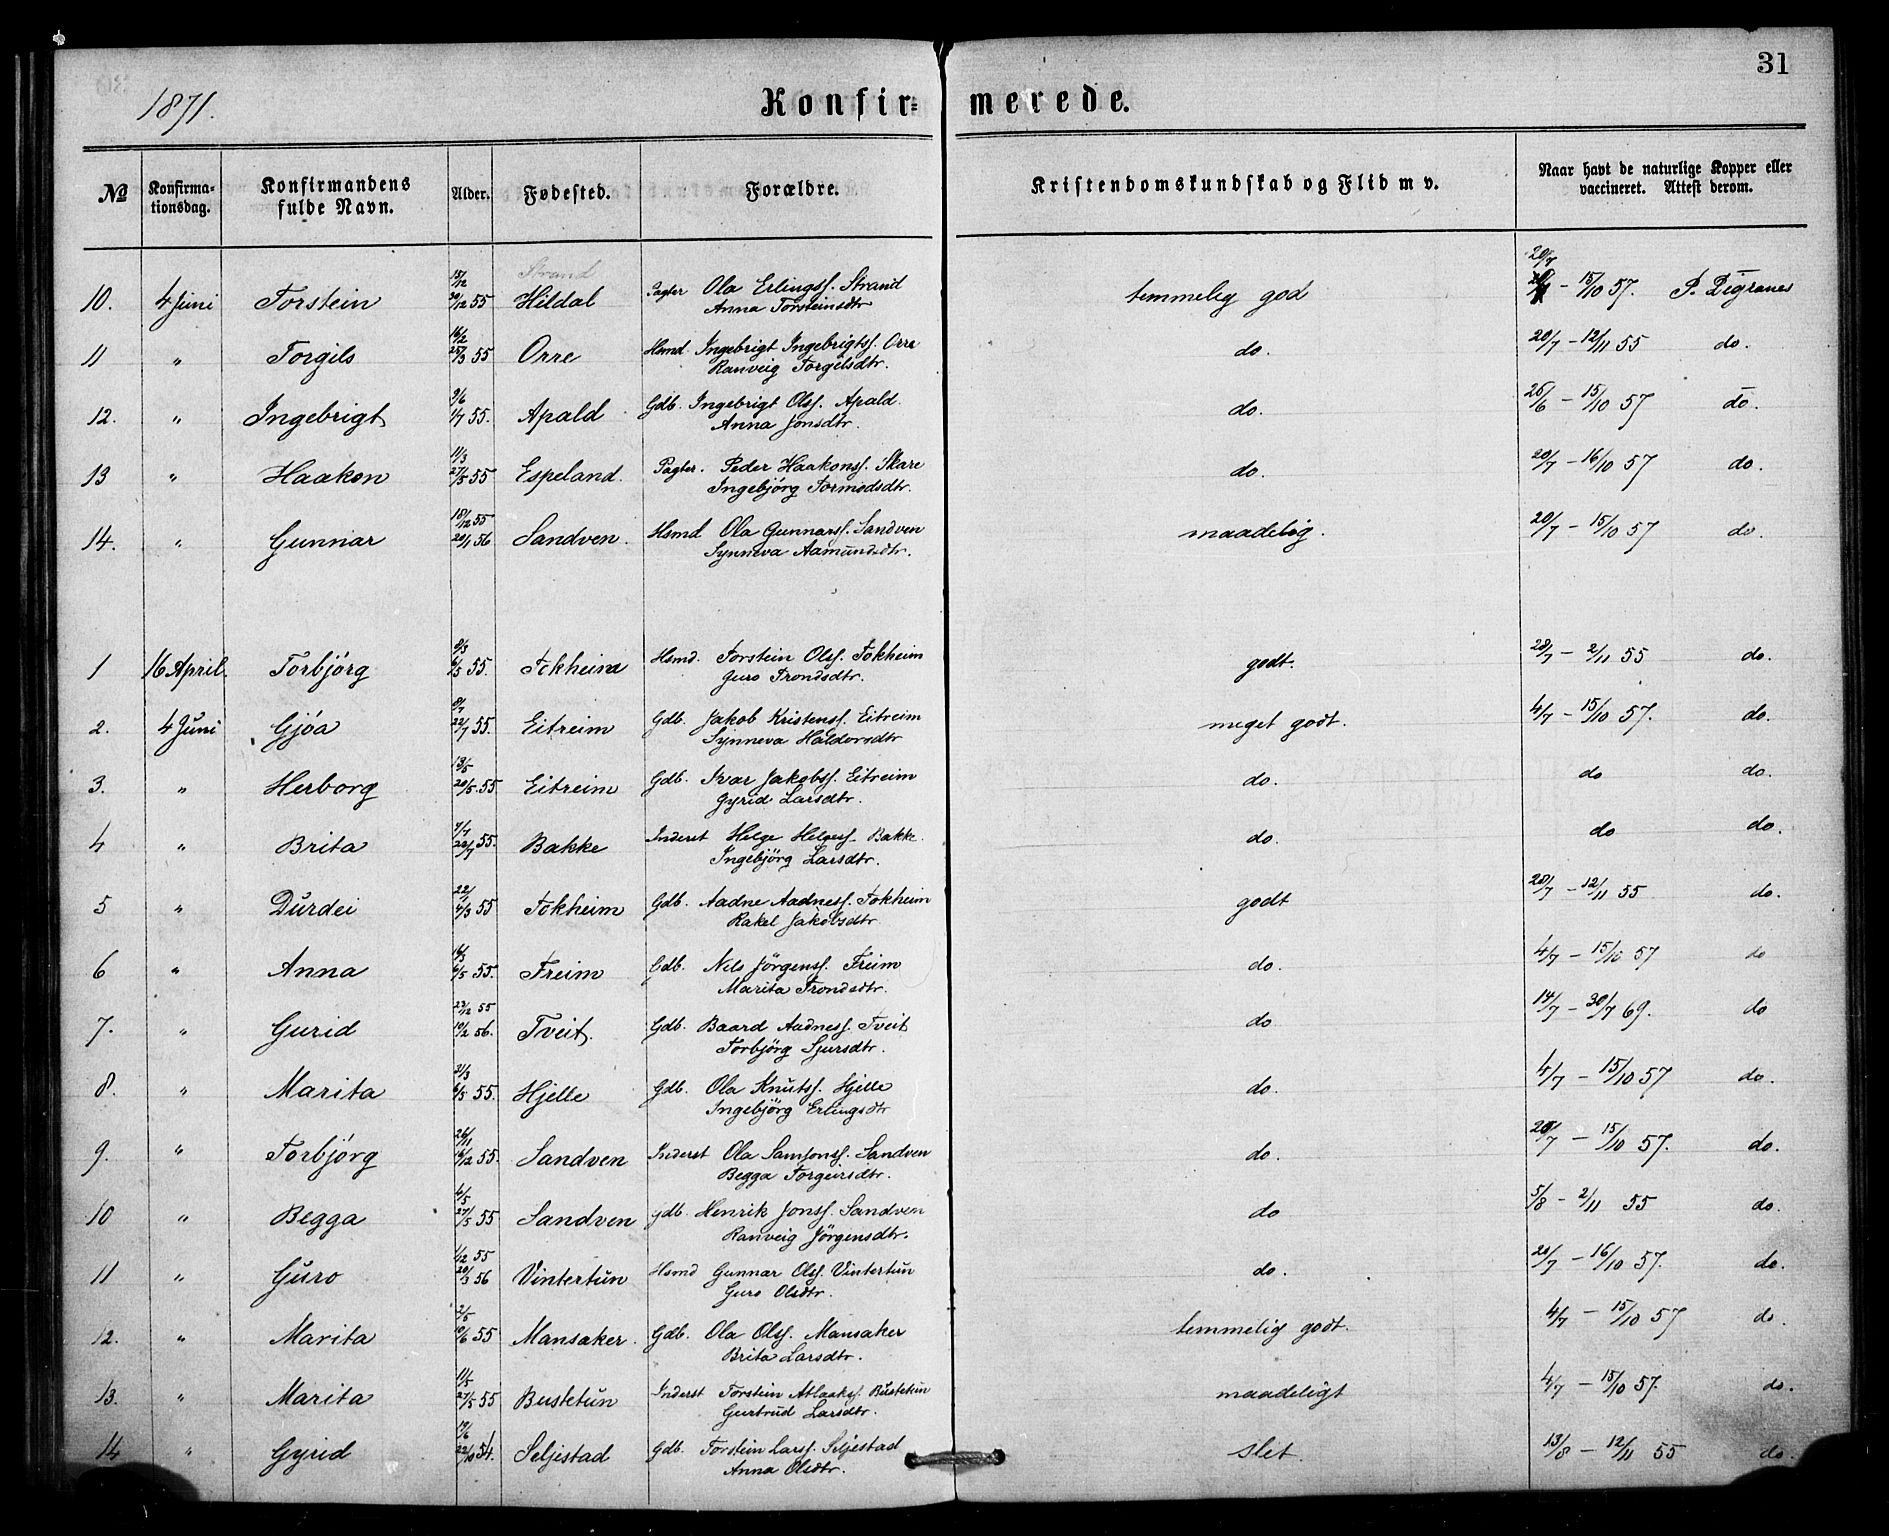 1871.
Konfir= merede.
31
No
Konfirma-
tionsdag.
Konfirmandens
fulde Navn.
Alder.
Fødested.
Forældre.
Kristendomskundskab og Flid m v.
Naar havt de naturlige Kopper eller
vaccineret. Attest derom.
15/12 Strand 20/7
10. 4 Juni Torstein 30/12 55 Hildal Pagter Ola Erlingss. Strand temmelig god – 15/10 57. P. Digranes
Anna Torsteinsdtr
16/2
11 " Torgils 25/3 55 Orre Hsmd. Ingebrigt Ingebrigtss. Orre do. 20/7 – 12/11 55 do.
Ranveig Torgilsdtr.
9/6
12. " Ingebrigt 1/7 55. Apald Gdb. Ingebrigt Olss. Apald. do. 25/6 – 15/10 57 do.
Anna Jonsdtr.
11/3
13 " Haakon 27/5 55 Espeland. Pagter. Peder Haakonss. Skare do. 20/7 – 16/10 57 do.
Ingebjörg Tormodsdtr.
18/12 55
14. " Gunnar 20/1 56 Sandven. Hsmd Ola Gunnarss. Sandven maadelig. 20/7 – 15/10 57 do.
Synneva Aamundsdtr.
8/3
1 16 April. Torbjörg 6/5 55. Tokheim Hsmd. Torstein Olss. Tokheim godt. 28/7 – 2/11 55 do.
Guro Trondsdtr.
8/7
2. 4 Juni Gjöa 22/7 55. Eitreim Gdb. Jakob Kristenss. Eitreim meget godt. 4/7 – 15/10 57. do.
Synneva Haldorsdtr
13/5
3. " Herborg 20/5. 55 Eitreim Gdb. Ivar Jakobss. Eitreim do. do do.
Gyrid Larsdtr.
7/7
4 " Brita 22/7 55. Bakke Inderst Helge Helgess. Bakke. do. do do.
Ingebjörg Larsdtr.
22/1
5 " Durdei 4/3 55 Tokheim Gdb. Aadne Aadness. Tokheim godt 28/7 – 12/11 55 do.
Rakel Jakobsdtr.
16/3
6 " Anna 6/5 55. Freim Gdb. Nils Jörgenss. Freim do. 4/7 – 15/10 57 do
Marita Trondsdtr.
23/12 55
7. " Gurid 10/2 56. Tveit. Gdb. Baard Aadness. Tveit do 14/7 – 30/7 69. do
Torbjörg Sjursdtr.
21/3
8. " Marita 6/5 55. Hjelle Gdb. Ola Knutss. Hjelle do. 4/7 – 15/10 57 do.
Ingebjörg Erlingsdtr
26/11
9. " Torbjörg 16/12 55. Sandven Inderst Ola Samsonss. Sandven do. 20/7 – 15/10 57. do.
Begga Torgeirsdtr.
4/5
10 " Begga 27/5 55 Sandven gdb. Henrik Jonss. Sandven do 5/8 – 2/11 55 do.
Ranveig Jörgensdtr.
1/12 55
11 " Guro 20/3 56 Vintertun Hsmd Gunnar Olss. Vintertun do. 20/7 – 16/10 57. do.
Guro Olsdtr.
2/5
12. " Marita 10/6 55 Mansaker. Gdb. Ola Olss. Mansaker temmelig godt. 4/7 – 15/10 57 do.
Brita Larsdtr.
11/5
13. " Marita 27/5 55 Bustetun Inderst Torstein Atlaakss. Bustetun maadeligt 4/7 – 15/10 57. do.
Gurtrud Larsdtr.
19/6
14 " Gyrid 22/10 54. Seljestad Gdb. Torstein Larss. Seljestad slet. 13/8 – 12/11 55 do.
Anna Olsdtr.